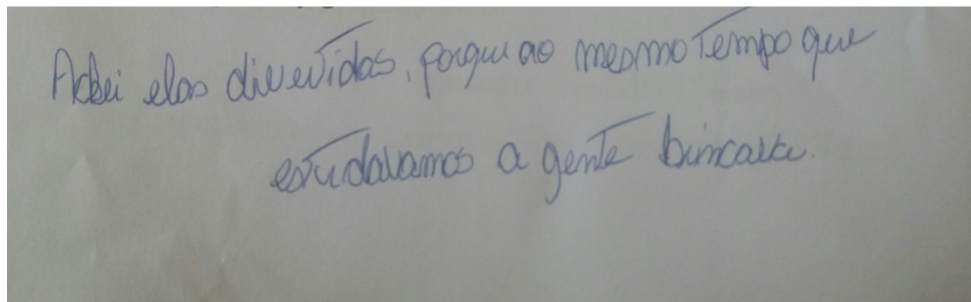 Achei elas divertidas, porque ao mesmo tempo que
estudavamos a gente brincava.